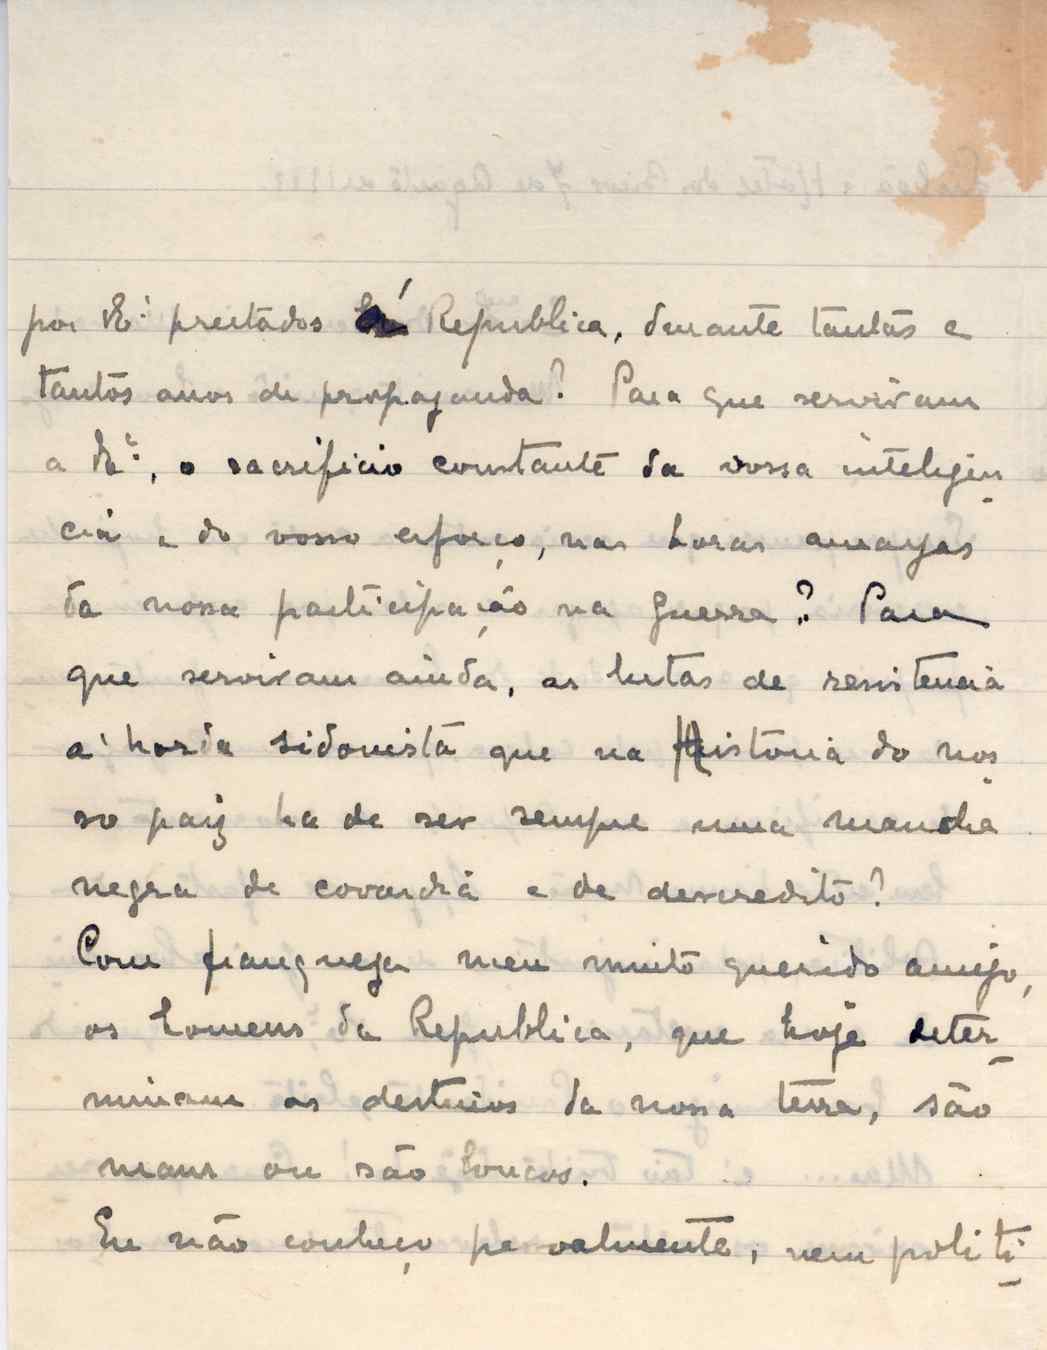 por V. Ex.ª prestados á Republica, durante tantas e
tantos anos de propaganda? Para que serviram
a V. Ex.ª, o sacrificio constante da vossa inteligen-
cia e do vosso esforço, nas horas amargas
da nossa participação na guerra? Para
que serviram ainda, as lutas de resistencia
a' horda sidonista que na Historia do nos-
so paiz ha de ser sempre uma mancha
negra de covardia e de descredito?
Com franqueza meu muito querido amigo,
os homens da Republica, que hoje deter-
minam os destinos da nossa terra, são
maus ou são loucos.
Eu não conheço pessoalmente, nem politi-